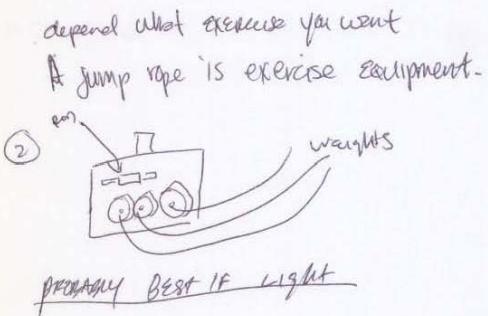 depend what exercise you want
A jump rope is exercise equipment.
②
weights
PROBABLY BEST IF Light